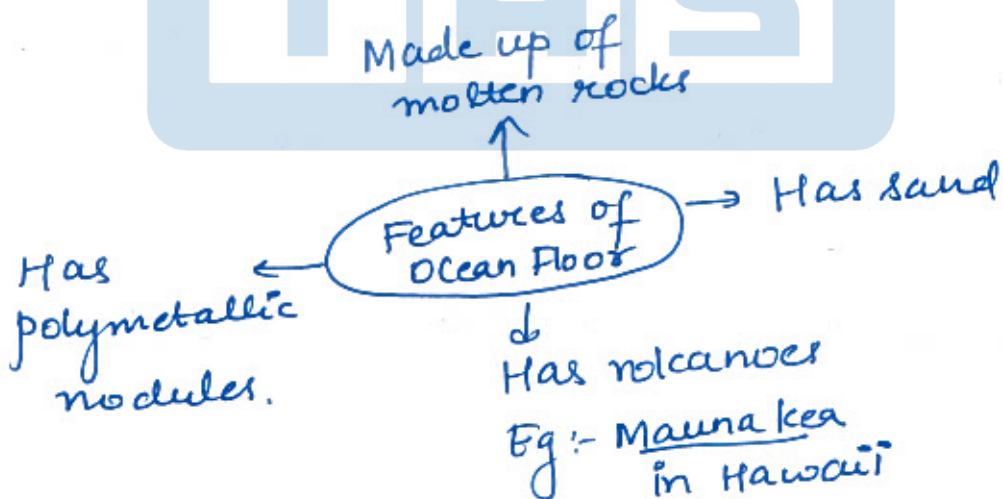 IAS
Made up of
molten rocks
Features of
Ocean Floor
Has sand
Has
polymetallic
nodules.
Has volcanoes
Eg :- Mauna kea
in Hawaii